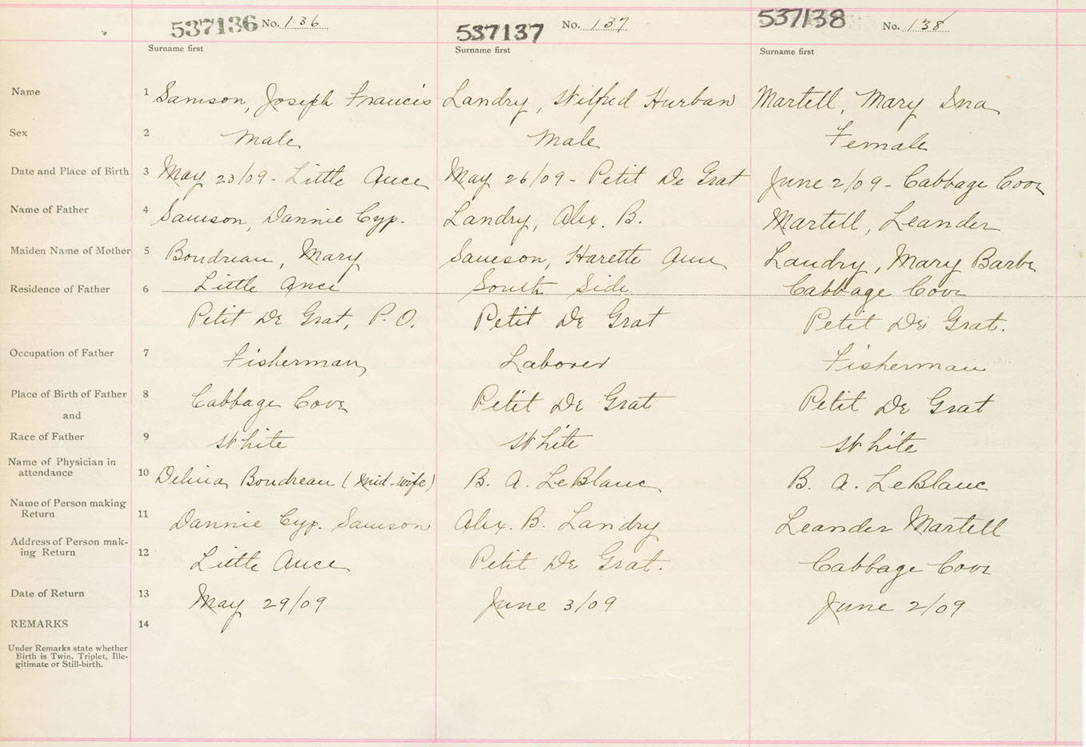 537136 No. 136 537137 No. 137 537138 No. 138
Surname first Surname first Surname first
Name 1 Samson, Joseph Francis Landry, Wilfred Hurban Martell, Mary Ina
Sex 2 Male Male Female
Date and Place of Birth 3 May 23/09 - Little Ance May 26/09 - Petit De Grat June 2/09 - Cabbage Cove
Name of Father 4 Samson, Dannie Cyp. Landry, Alex. B. Martell, Leander
Maiden Name of Mother 5 Boudreau, Mary Samson, Harette Ann Landry, Mary Barbe
Residence of Father 6 Little Ance South Side Cabbage Cove
Petit De Grat, P.O. Petit De Grat Petit De Grat.
Occupation of Father 7 Fisherman Laborer Fisherman
Place of Birth of Father 8 Cabbage Cove Petit De Grat Petit De Grat
and
Race of Father 9 White White White
Name of Physician in
attendance 10 Delina Boudreau (Mid-wife) B. A. LeBlanc B. A. LeBlanc
Name of Person making
Return 11 Dannie Cyp. Samson Alex. B. Landry Leander Martell
Address of Person mak-
ing Return 12 Little Ance Petit De Grat. Cabbage Cove
Date of Return 13 May 29/09 June 3/09 June 2/09
REMARKS 14
Under Remarks state whether
Birth is Twin, Triplet, Ille-
gitimate or Still-birth.